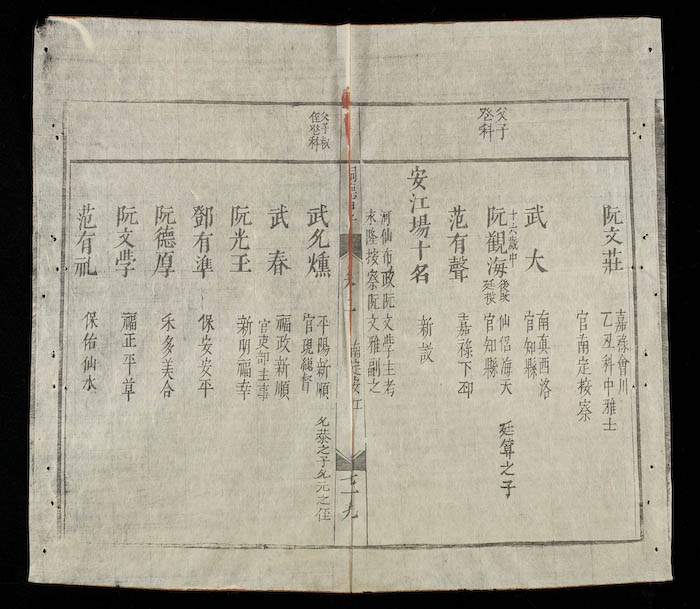 父子
登科
阮文莊
嘉祿會川
乙丑科中雅士
官南定按察
武大
南真西洛
官知縣
阮觀海
十六歲中
仙侶海天
官知縣
廷算之子
范有聲
嘉祿下
安江場十名
新設
河仙布政阮文學主考
永隆按察阮文雅副之
南定安江
七十九
父子叔
侄登科
武允燻
平陽新順
官現總督
允恭之子允元之侄
武春
福政新順
官吏部主事
阮光玉
新明福幸
鄧有準
保安安平
阮德厚
禾多美合
阮文學
福正平草
范有礼
保佑仙水